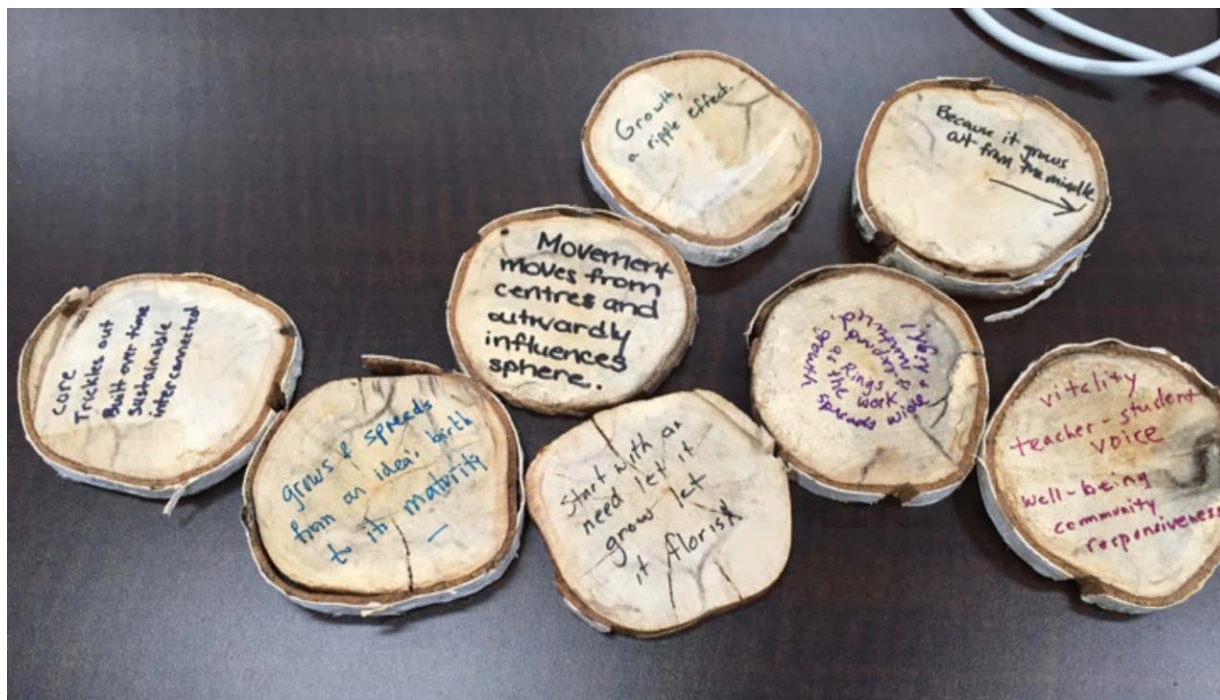 Growth,
a ripple effect.
Because it grows
out from the middle
Movement
moves from
centres and
outwardly
influences
sphere.
core
Trickles out
Built over time
sustainable
interconnected
grows & spreads
from an idea, birth
to its maturity
Start with an
need let it
grow let
it florish
Rings
expand as
the work
spreads
growth
vitality
teacher-student
voice
well-being
community
responsiveness